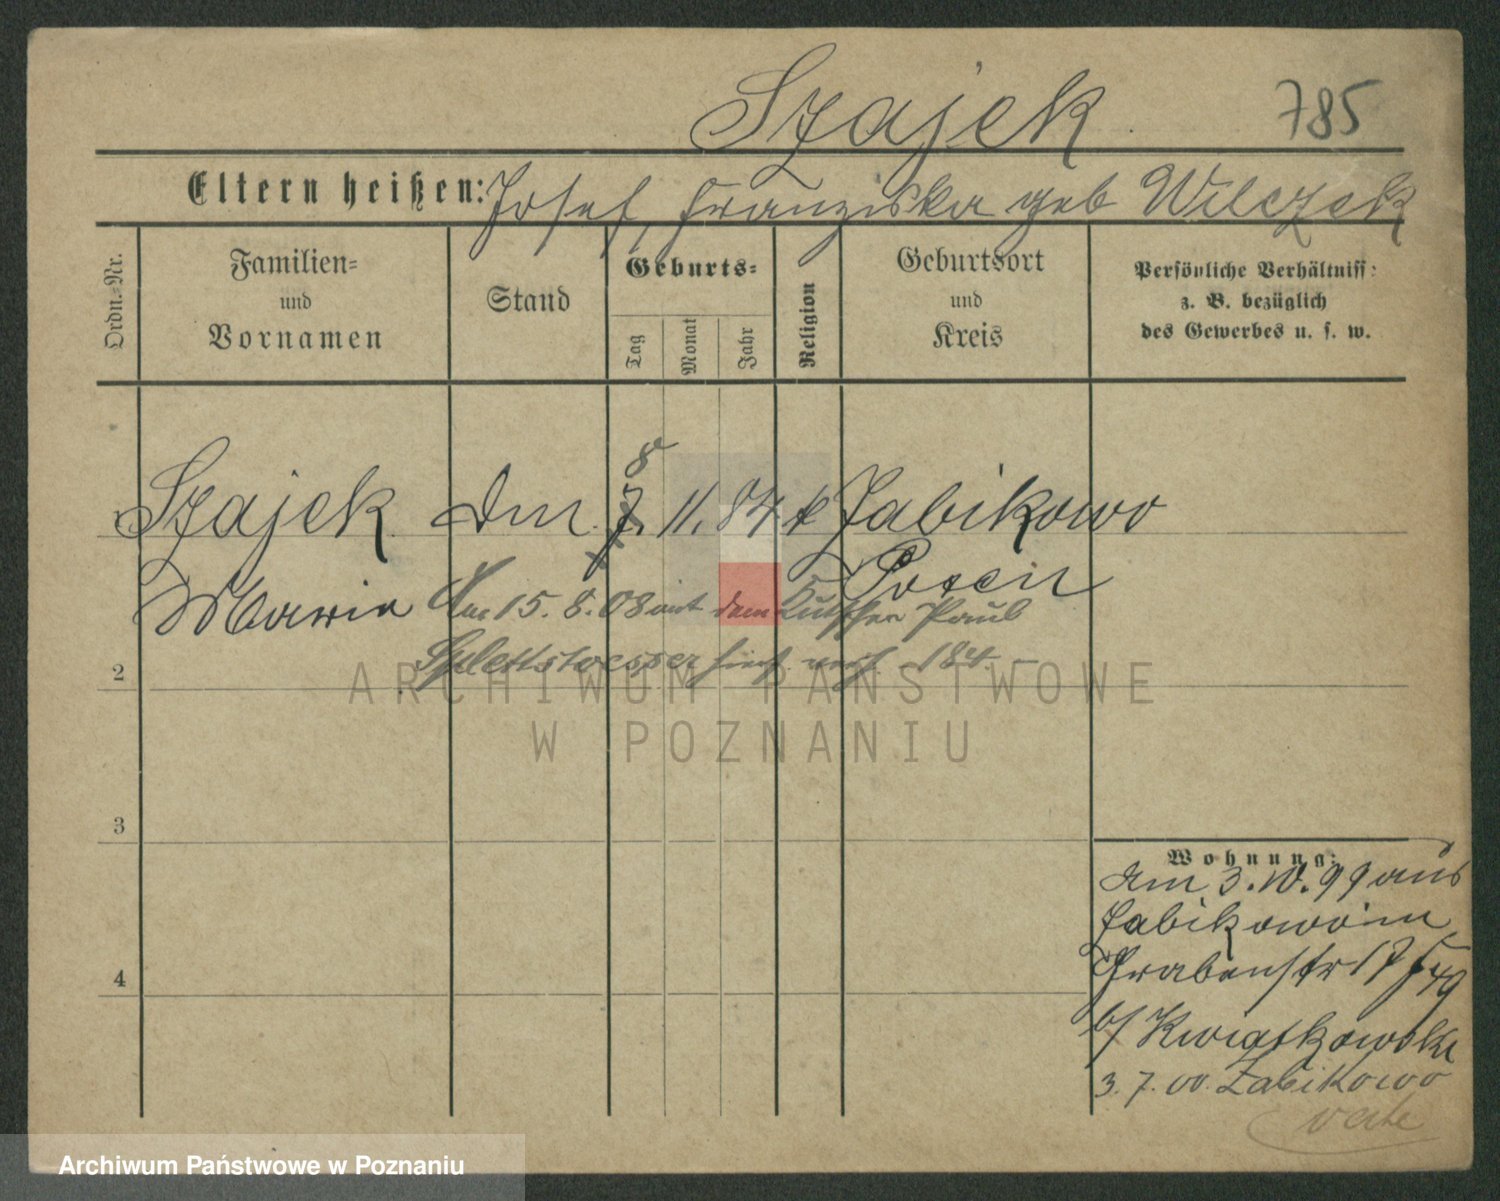 Szajek
785
Eltern heißen: Josef, Franziska geb Wilczek
Ordn.-Nr.
Familien-
und
Vornamen
Stand
Geburts-
Tag
Monat
Jahr
Religion
Geburtsort
und
Kreis
Persönliche Verhältniss:
z. B. bezüglich
des Gewerbes u. s. w.
8
Szajek Dm. 7. 11. 84 k Zabikowo
Maria Posen
Am 15. 8. 08 mit dem Kutscher Paul
2 Splettstoesser hierselbst 184
ARCHIWUM PAŃSTWOWE
W POZNANIU
3
Wohnung:
am 3. 10. 99 aus
Zabikowo in
4 Grabenstr 17
b/ Kwiatkowski
3. 7. 00. Zabikowo
verte
Archiwum Państwowe w Poznaniu